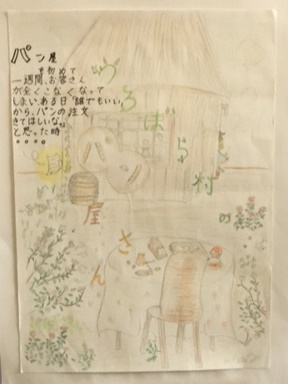 パン屋
を初めて
一週間、お客さん
が全くこなくなって
しまい、ある日「誰でもいい
から、パンの注文
きてほしいな。」
と思った時
・・・・
うろばら村の
屋さん